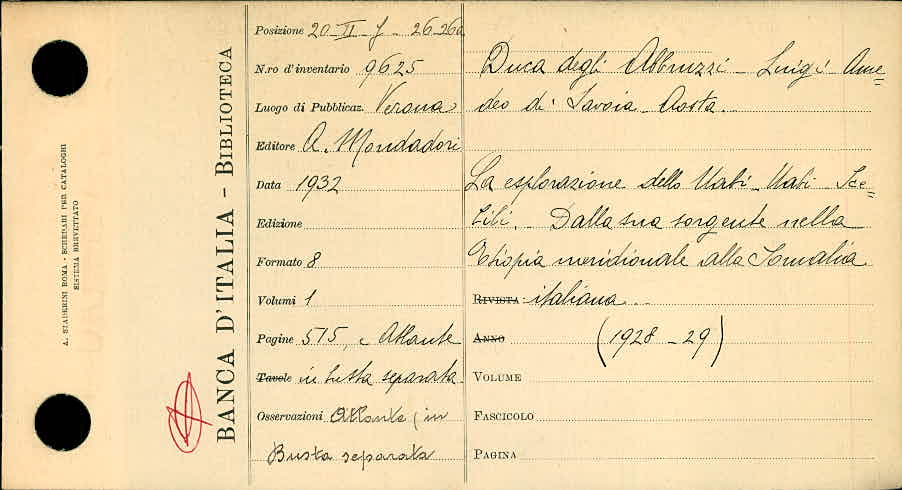 A. STADERINI ROMA - SCHEDARI PER CATALOGHI
SISTEMA BREVETTATO
BANCA D'ITALIA - BIBLIOTECA
Posizione 20-II-f - 26-26a
N.ro d'inventario 9625
Luogo di Pubblicaz. Verona
Editore A. Mondadori
Data 1932
Edizione
Formato 8
Volumi 1
Pagine 515, e Atlante
Tavole in busta separata
Osservazioni Atlante (in
Busta separata
Duca degli Abbruzzi - Luigi Ame=
deo di Savoia Aosta.
La esplorazione dello Uabi-Uabi Sce=
bili. - Dalla sua sorgente nella
Etiopia meridionale alla Somalia
RIVISTA italiana.
ANNO (1928-29)
VOLUME
FASCICOLO
PAGINA